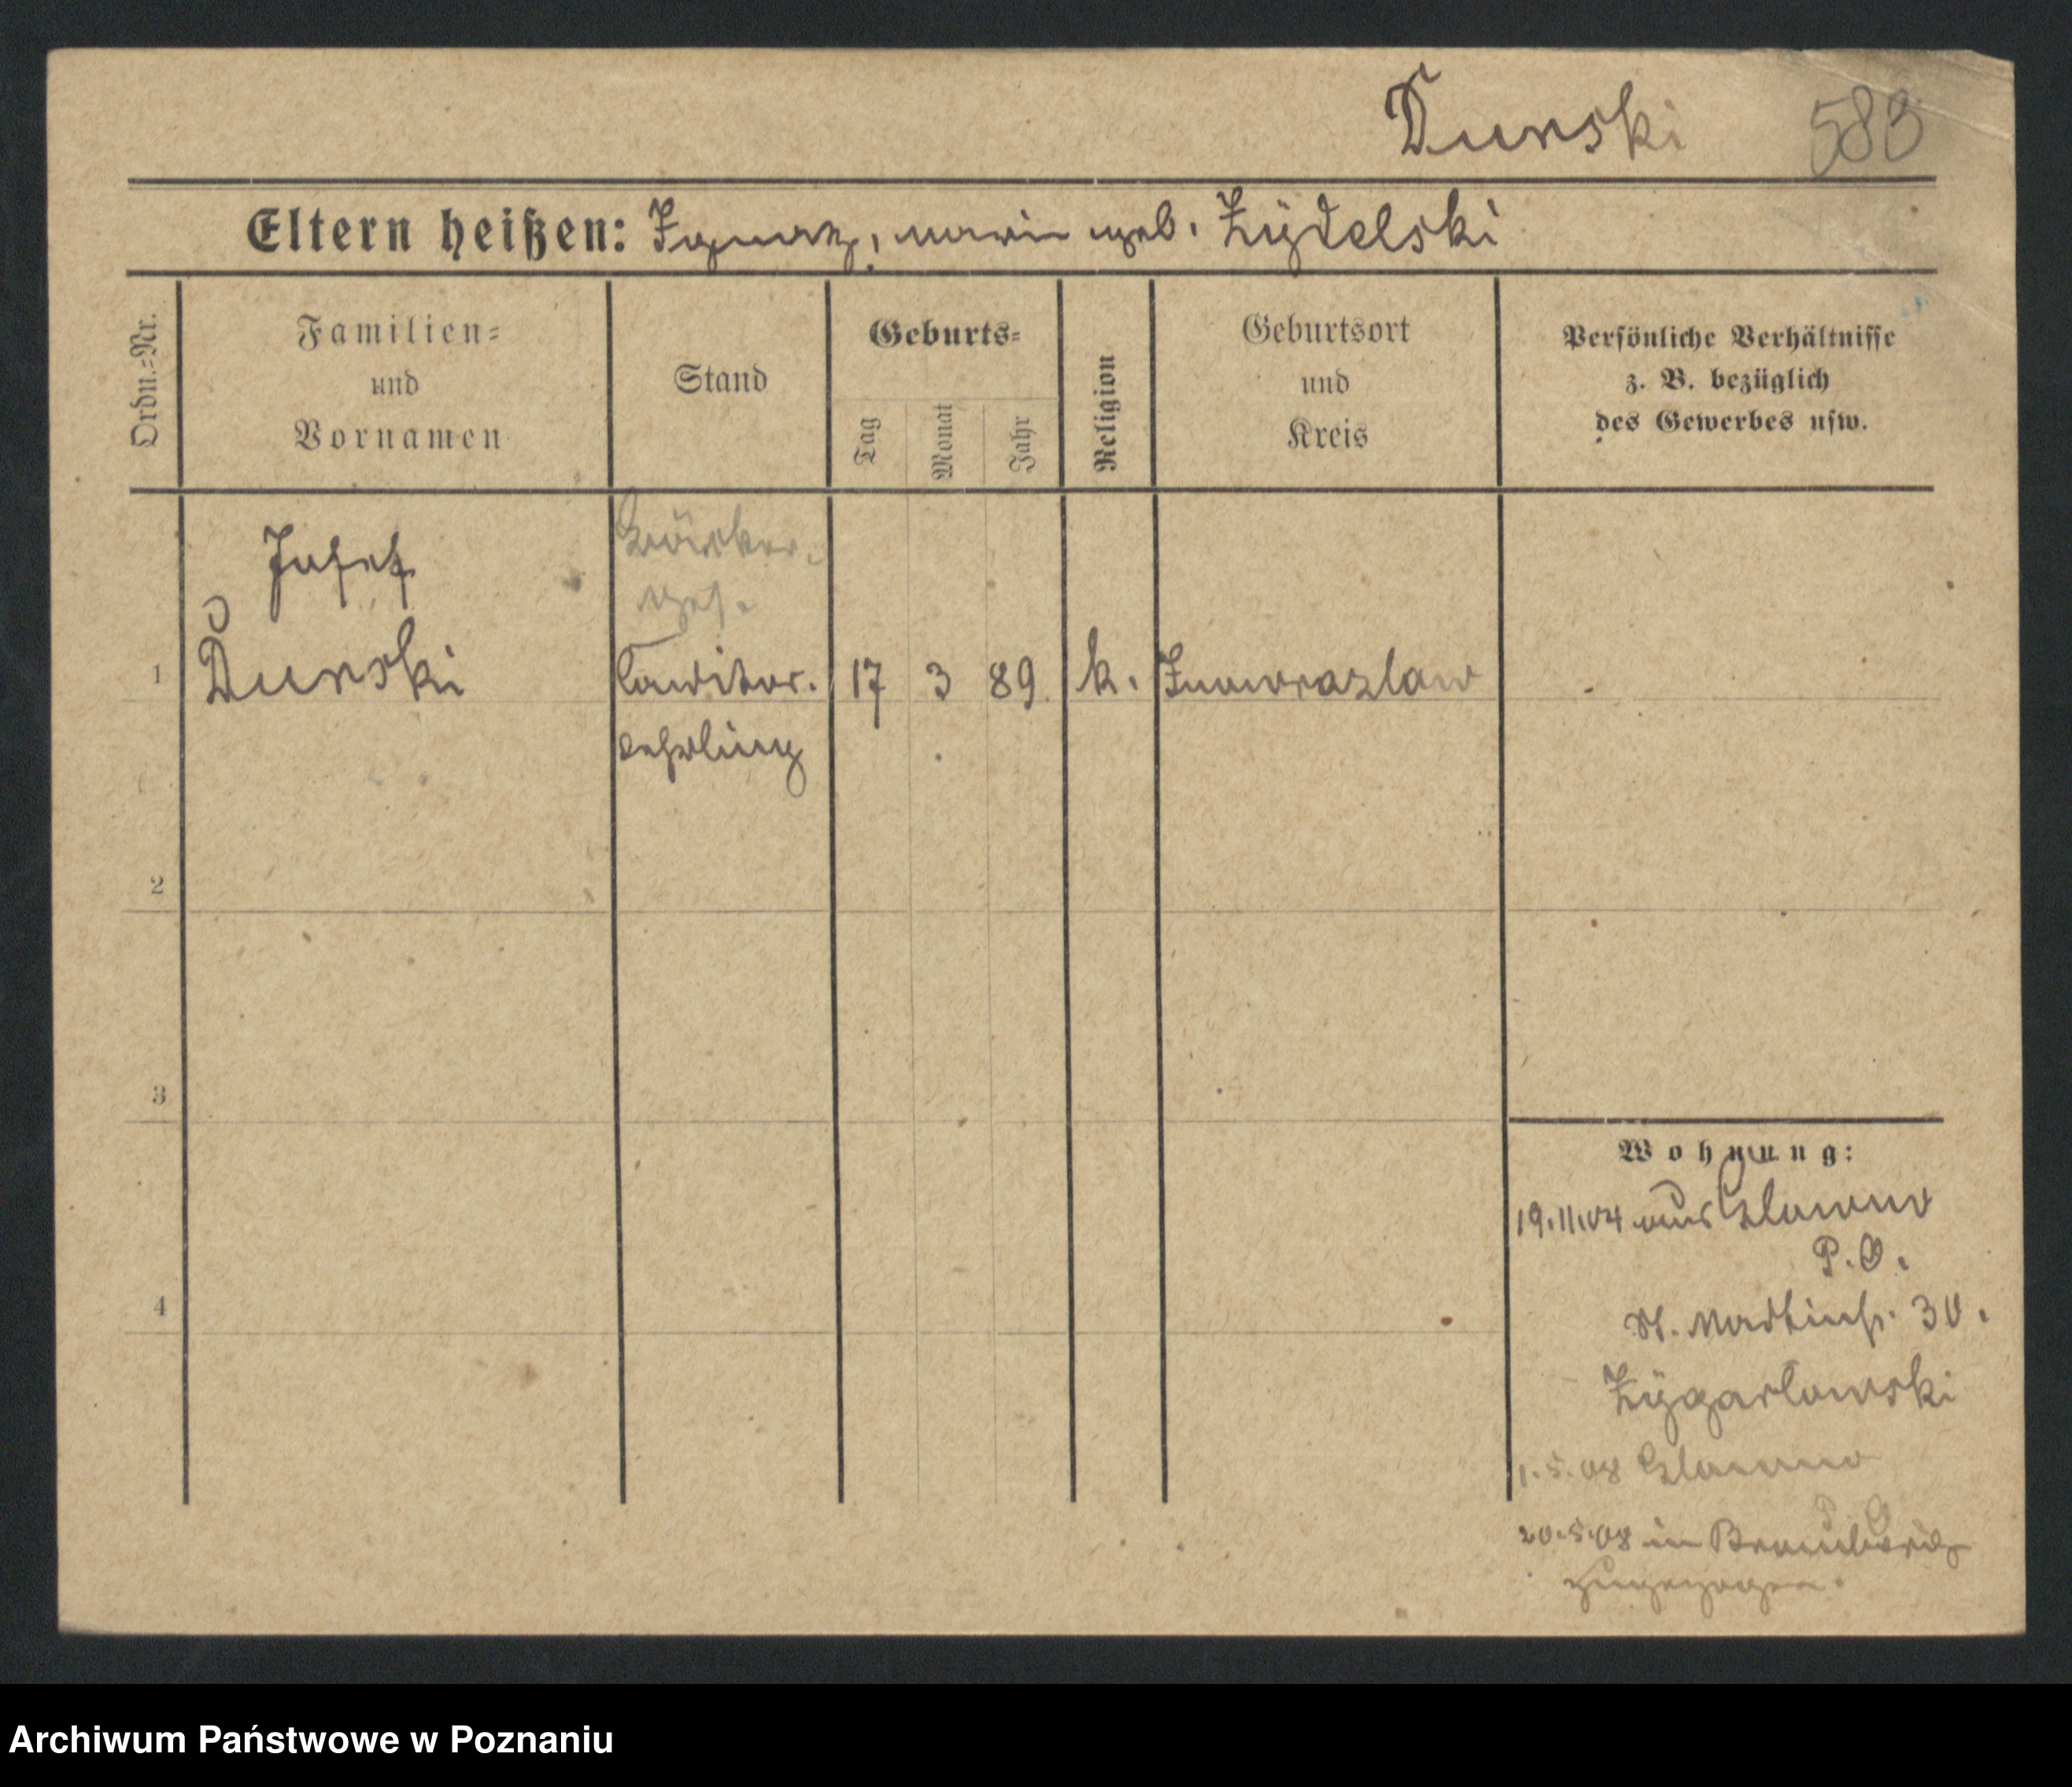 Dunski 583
Eltern heißen: Ignatz, Marie geb. Zÿdelski
Ordn.=Nr.
Familien=
und
Vornamen
Stand
Geburts=
Tag
Monat
Jahr
Religion
Geburtsort
und
Kreis
Persönliche Verhältnisse
z. B. bezüglich
des Gewerbes usw.
Josef
ges.
1 Dunski Conditor. 17 3 89 k. Inowrazlaw
Lehrling
2
3
4
Wohnung:
19.11.04 aus Glowno
P.O.
St. Martinstr. 30.
Zÿgarlowski
1.5.08 Glowno
P. O.
20.5.08 in
zugezogen.
Archiwum Państwowe w Poznaniu